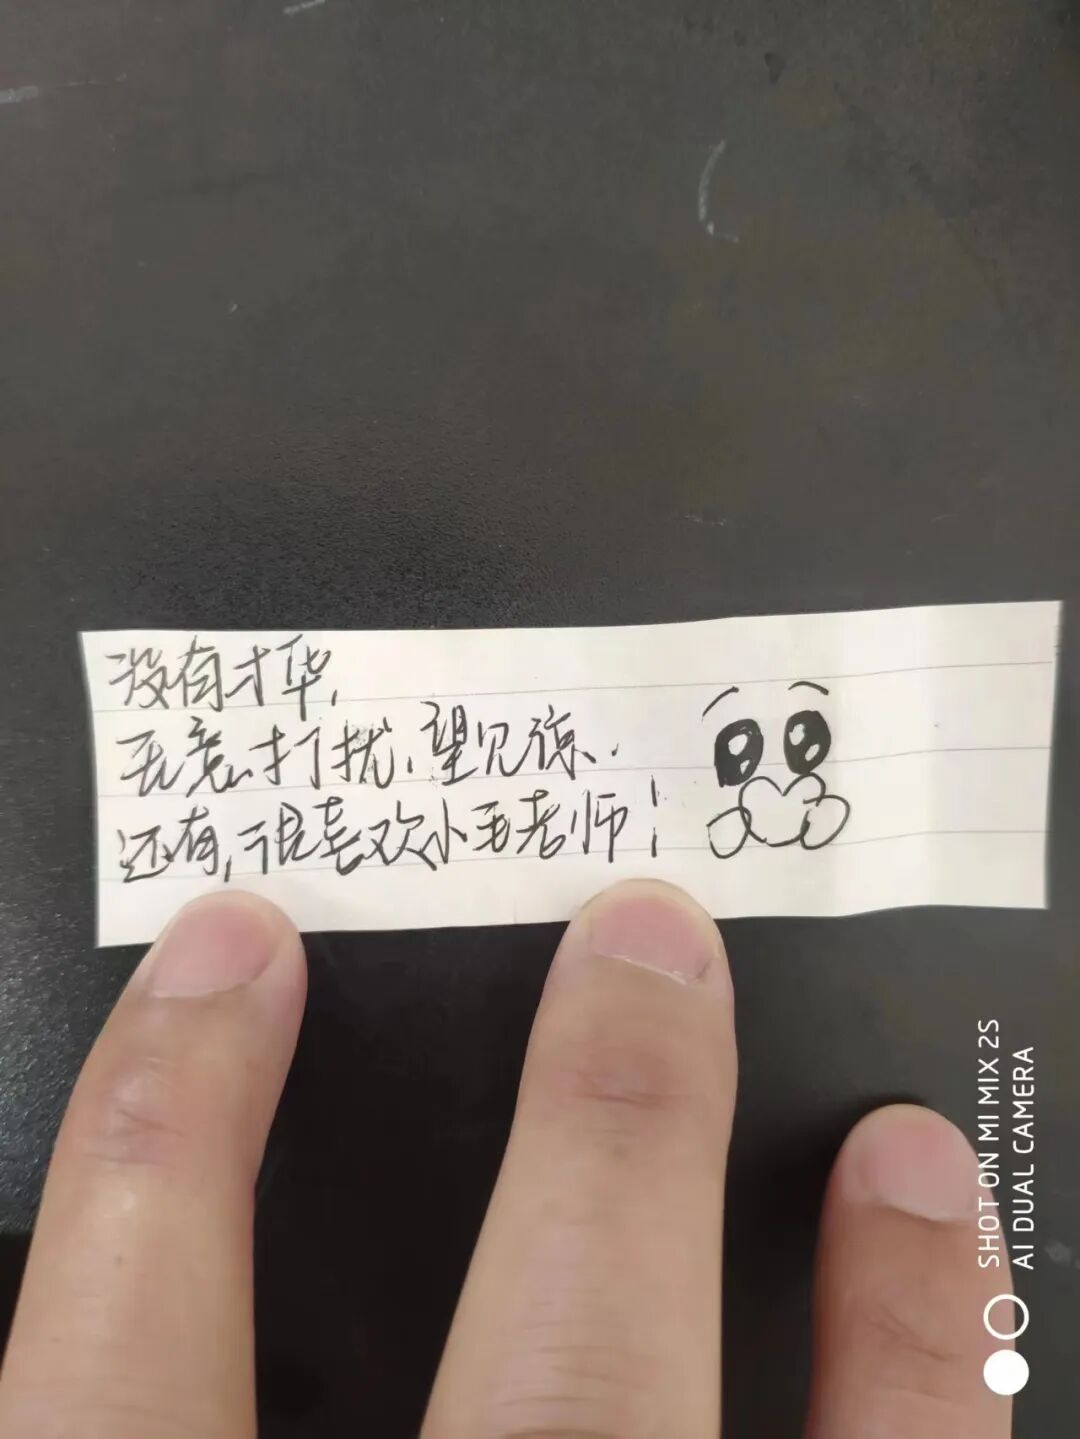 没有才华，
无意打扰，望见谅.
还有，很喜欢小毛老师！
SHOT ON MI MIX 2S
AI DUAL CAMERA